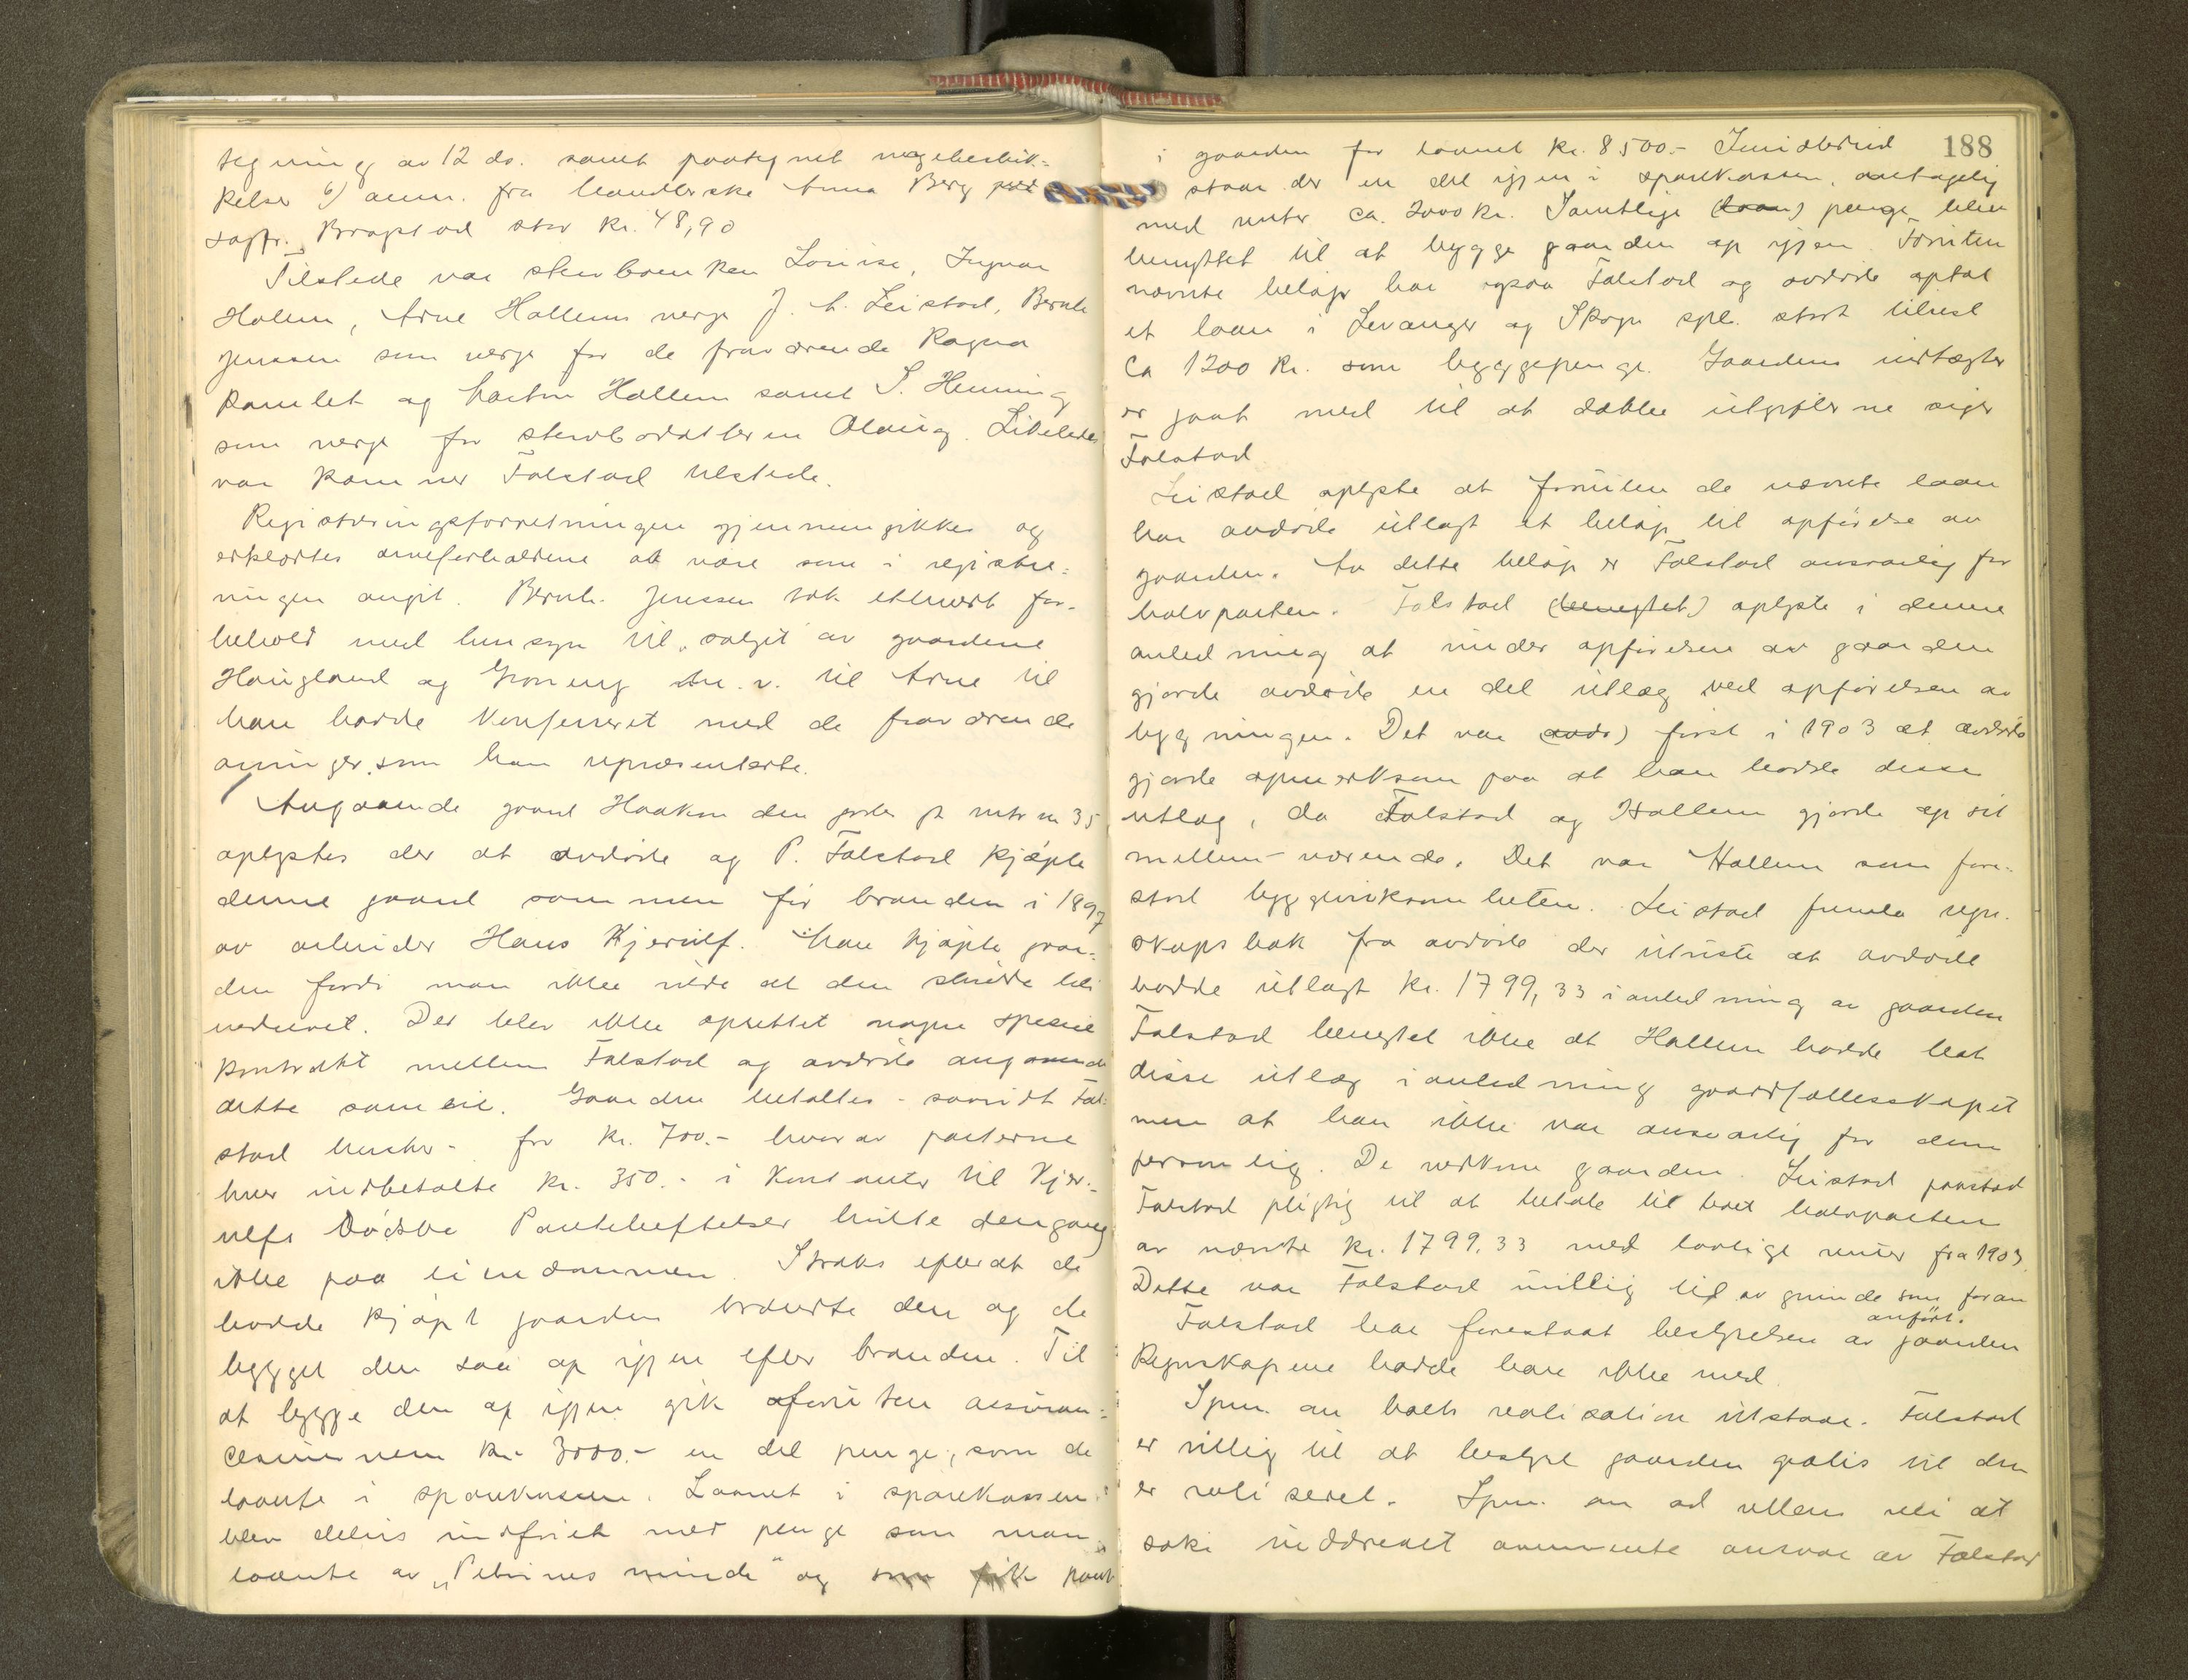 tegning av 12 ds. samt paategnet magebeskik=
kelse 6) anm. fra handlerske Anna Berg ved
sagfr. Bragstad stor kr. 48,90
Tilstede var sterboenken Louise, Ingvar
Hallem, Arne Hallems verge J. A. Leistad, Bernh.
Jenssen som verge for de fraværende Ragna
Ramlet og Marton Hallem samt S. Henning
som verge for sterbodatteren Olaug. Likeledes
var kamner Falstad tilstede.
Registreringsforretningen gjennemgikkes og
erklærtes arveforholdene at være som i registre=
ringen angit. Bernh. Jenssen tok ethvert for-
behold med hensyn til „salget" av gaardene
Haugland og Groneng m. v. til Arne til
han hadde konferert med de fraværende
arvinger som han repræsenterte.
Angaaende gaard Haakon den godes gt mtr nr 35
oplystes der at avdøde og P. Falstad kjøpte
denne gaard sammen før branden i 1897
av arbeider Hans Kjerulf. Man kjøpte gaar=
den fordi man ikke vilde at den skulde bli
nedrevet. Der blev ikke oprettet nogen speciel
kontrakt mellem Falstad og avdøde angaaende
dette sameie. Gaarden betaltes - saavidt Fal=
stad husker - for kr. 700.- hvorav parterne
hver indbetalte kr. 350.- i kontanter til Kjer-
ulfs dødsbo Panteheftelser hvilte dengang
ikke paa eiendommen. Straks efterat de
hadde kjøpt gaarden brændte den og de
bygget den saa op igjen efter branden. Til
at bygge den op igjen gik foruten assuran=
cesummen kr. 3000.- en del penge, som de
laante i sparekassen. Laanet i sparekassen
blev delvis indfriet med penge som man
laante av „Petrines minde" og som fik pant
188
i gaarden for laanet kr. 8500.- Imidlertid
staar der en del igjen i sparekassen, antagelig
med renter ca. 2000 kr. Samtlige (laan) penge blev
benyttet til at bygge gaarden op igjen. Foruten
nævnte beløp har ogsaa Falstad og avdøde optat
et laan i Levanger og Skogn spb. stort tilrest
ca 1200 kr. som byggepenge. Gaardens indtægter
er gaat med til at dække utgifterne siger
Falstad
Leistad oplyste at foruten de nævnte laan
har avdøde utlagt et beløp til opførelse av
gaarden. Av dette beløp er Falstad ansvarlig for
halvparten. Falstad (benegtet) oplyste i denne
anledning at under opførelsen av gaarden
gjorde avdøde en del utlæg ved opførelsen av
bygningen. Det var (avdø) først i 1903 at avdøde
gjorde opmerksom paa at han hadde disse
utlæg, da Falstad og Hallem gjorde op sit
mellem-værende. Det var Hallem som fore-
stod byggevirksomheten. Leistad fremla regn-
skapsbok fra avdøde der utviste at avdøde
hadde utlagt kr. 1799,33 i anledning av gaarden
Falstad benegtet ikke at Hallem hadde hat
disse utlæg i anledning gaardfællesskapet
men at han ikke var ansvarlig for dem
personlig. De vedkom gaarden. Leistad paastod
Falstad pligtig til at betale til boet halvparten
av nævnte kr. 1799.33 med lovlige renter fra 1903
Dette var Falstad uvillig til av grunde som foran
anført.
Falstad har forestaat bestyrelsen av gaarden
Regnskapene hadde han ikke med
Spm. om boets realisation utstaar. Falstad
er villig til at bestyre gaarden gratis til den
er realiseret. Spm. om ad rettens vei at
søke inddrevet ansvar av Falstad